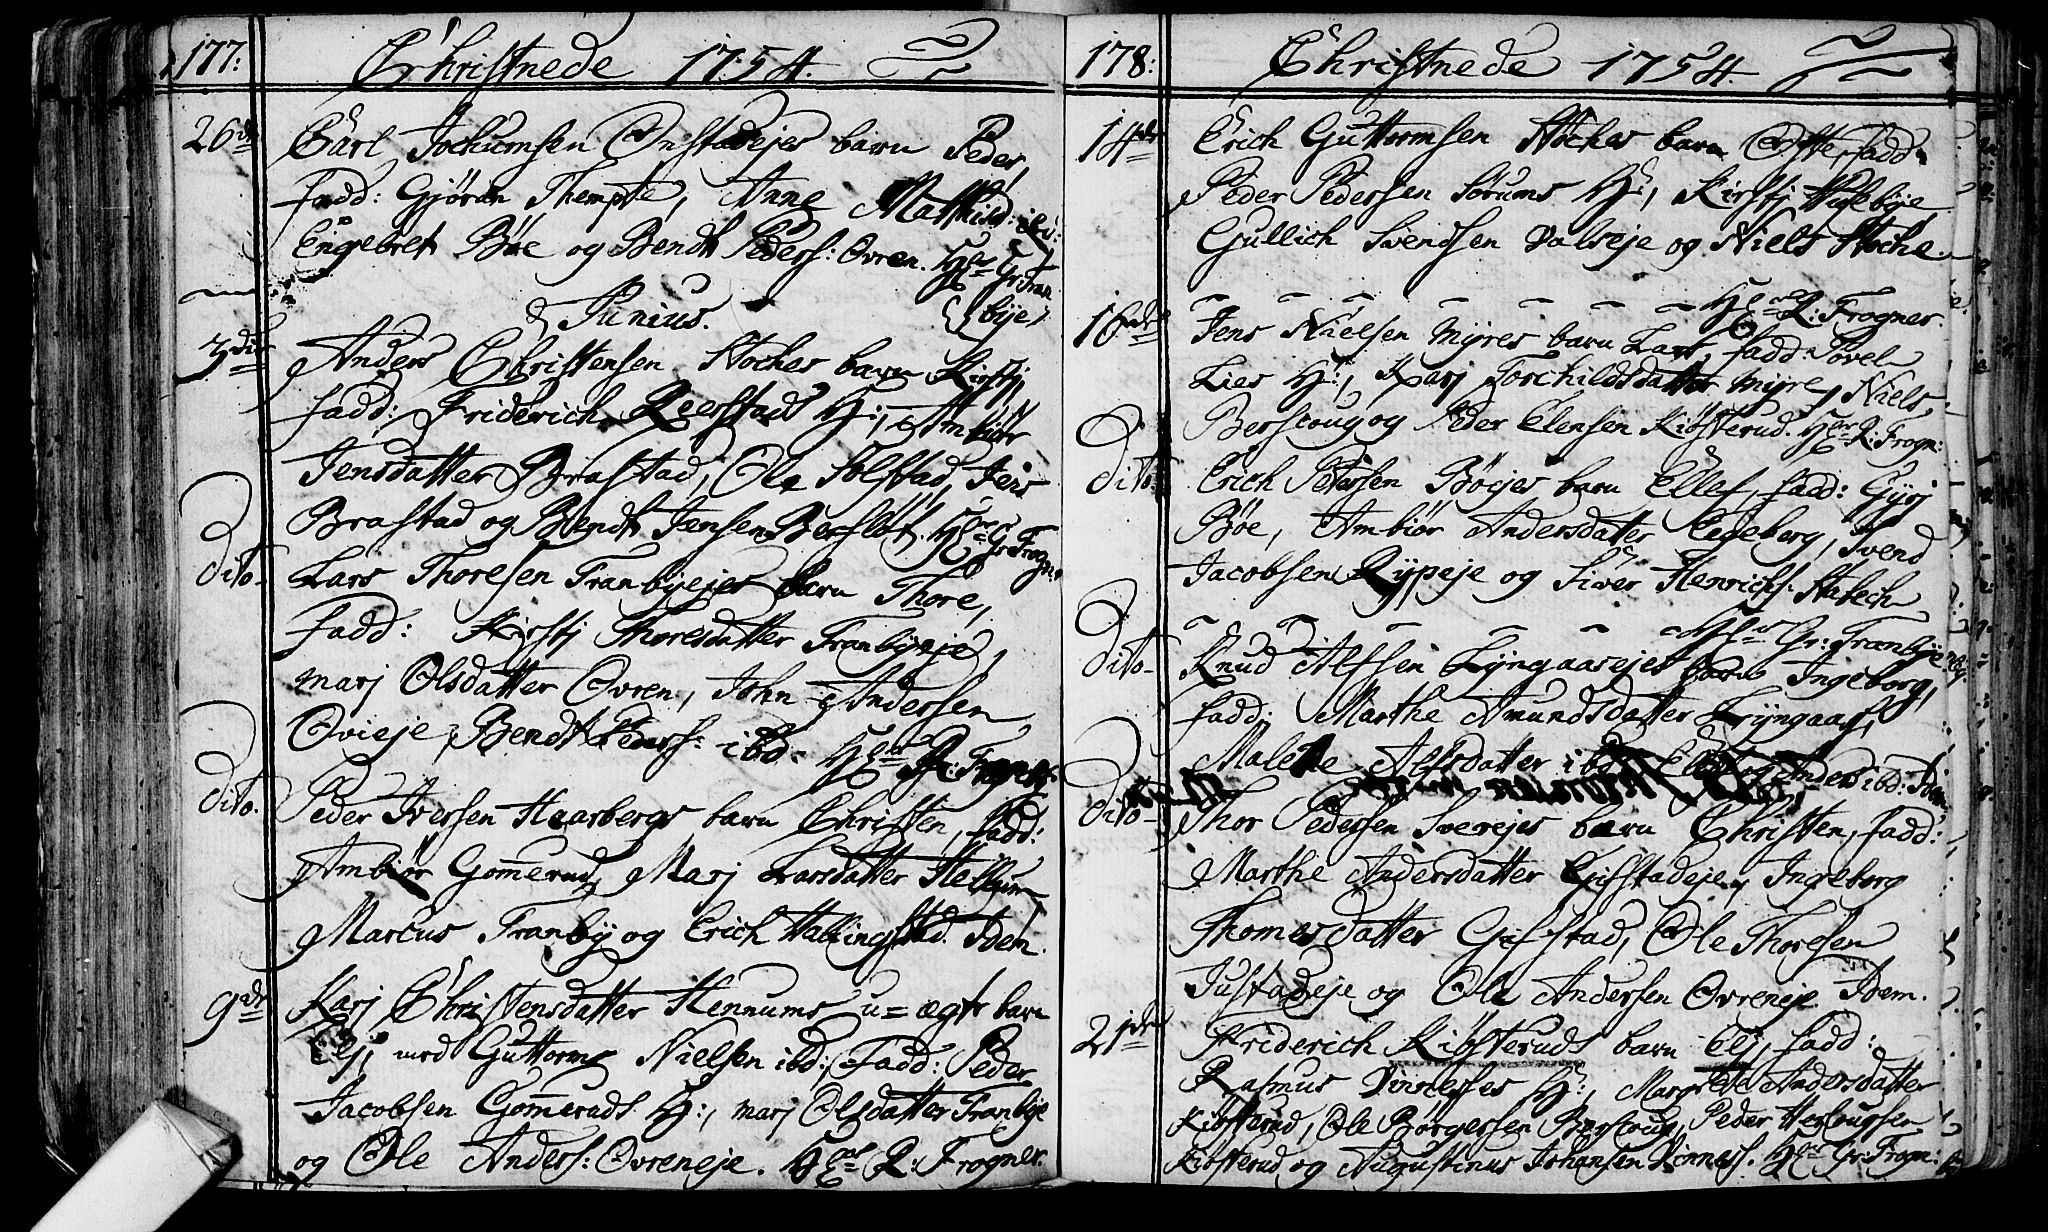 177: Christnede 1754.
26de Carl Jochumsen Onstadejes barn Peder,
fadd: Gjøran Thempte, Anne Mathisd: ibd:
Engebret Bøe og Bendt Peders: Ovren. Gr: Fran
bye
Junius.
3die Anders Christensen Stoches barn Kirstj,
fadd: Friderich Reerstads H:, Ambiør
Jensdatter Brastad, Ole Solstad, Jens
Brastad og Bendt Jensen Bersløt. Gr: Frogn.
Dito- Lars Thoresen Franbyejes barn Thore,
fadd: Kirstj Thoresdatter Franbyeje,
marj Olsdatter Ovren, John Andersen
Ovieje, Bendt Peders: ibd. R: Frogner.
Dito. Peder Iversen Haarbergs barn Christen, fadd:
Ambiør Gomerud, Marj Larsdatter Hellum
Marcus Franby og Erich Hallingstad. Idem.
9de Karj Christensdatter Hennums u=ægte barn
Elj, med Guttorm Nielsen ibd:, Fadd: Peder
Jacobsen Gomeruds H:, marj Olsdatter Franbye
og Ole Anders: Ovreneje. R: Frogner.
178: Christnede 1754.
14de Erich Guttormsen Stoches barn fadd:
Peder Pedersen Sørums H:, Kirstj Husebye
Gullich Svendsen Valseje og Niels Stoche.
R: Frogner.
16de Jens Nielsen Myres barn Lars, fadd: Povel
Lies H:, Karj Torchildsdatter Myre, Niels
Berscoug og Peder Elensen Kiøsterud. R: Frogn:
Dito Erich Petersen Bøejes barn Ellef, fadd: Gyrj
Bøe, Ambiør Andersdatter Egeberg, Svend
Jacobsen Rypeje og Siver Henrichs: Stabech
Gr: Franbye
Dito- Knud Alfsen Lyngaasejes barn Ingeborg,
fadd: Marthe Amundsdatter Lyngaas,
Malene Alfsdatter ibd: og Anders ibd: Idem
Dito- Thor Pedersen Sverejes barn Christen, fadd:
Marthe Andersdatter Gifstadeje, Ingeborg
Thomesdatter Gifstad, Ole Thoresen
Justadeje og Ole Andersen Ovreneje. Idem.
21de Friderich Kiøsteruds barn Elj, fadd:
Rasmus Vinnesses H:, Margreta Andersdatter
Kiøsterud, Ole Børgersen Berscoug, Peder
Kiøsterud og Augustinus Johansen Vinness. Gr: Frogn: